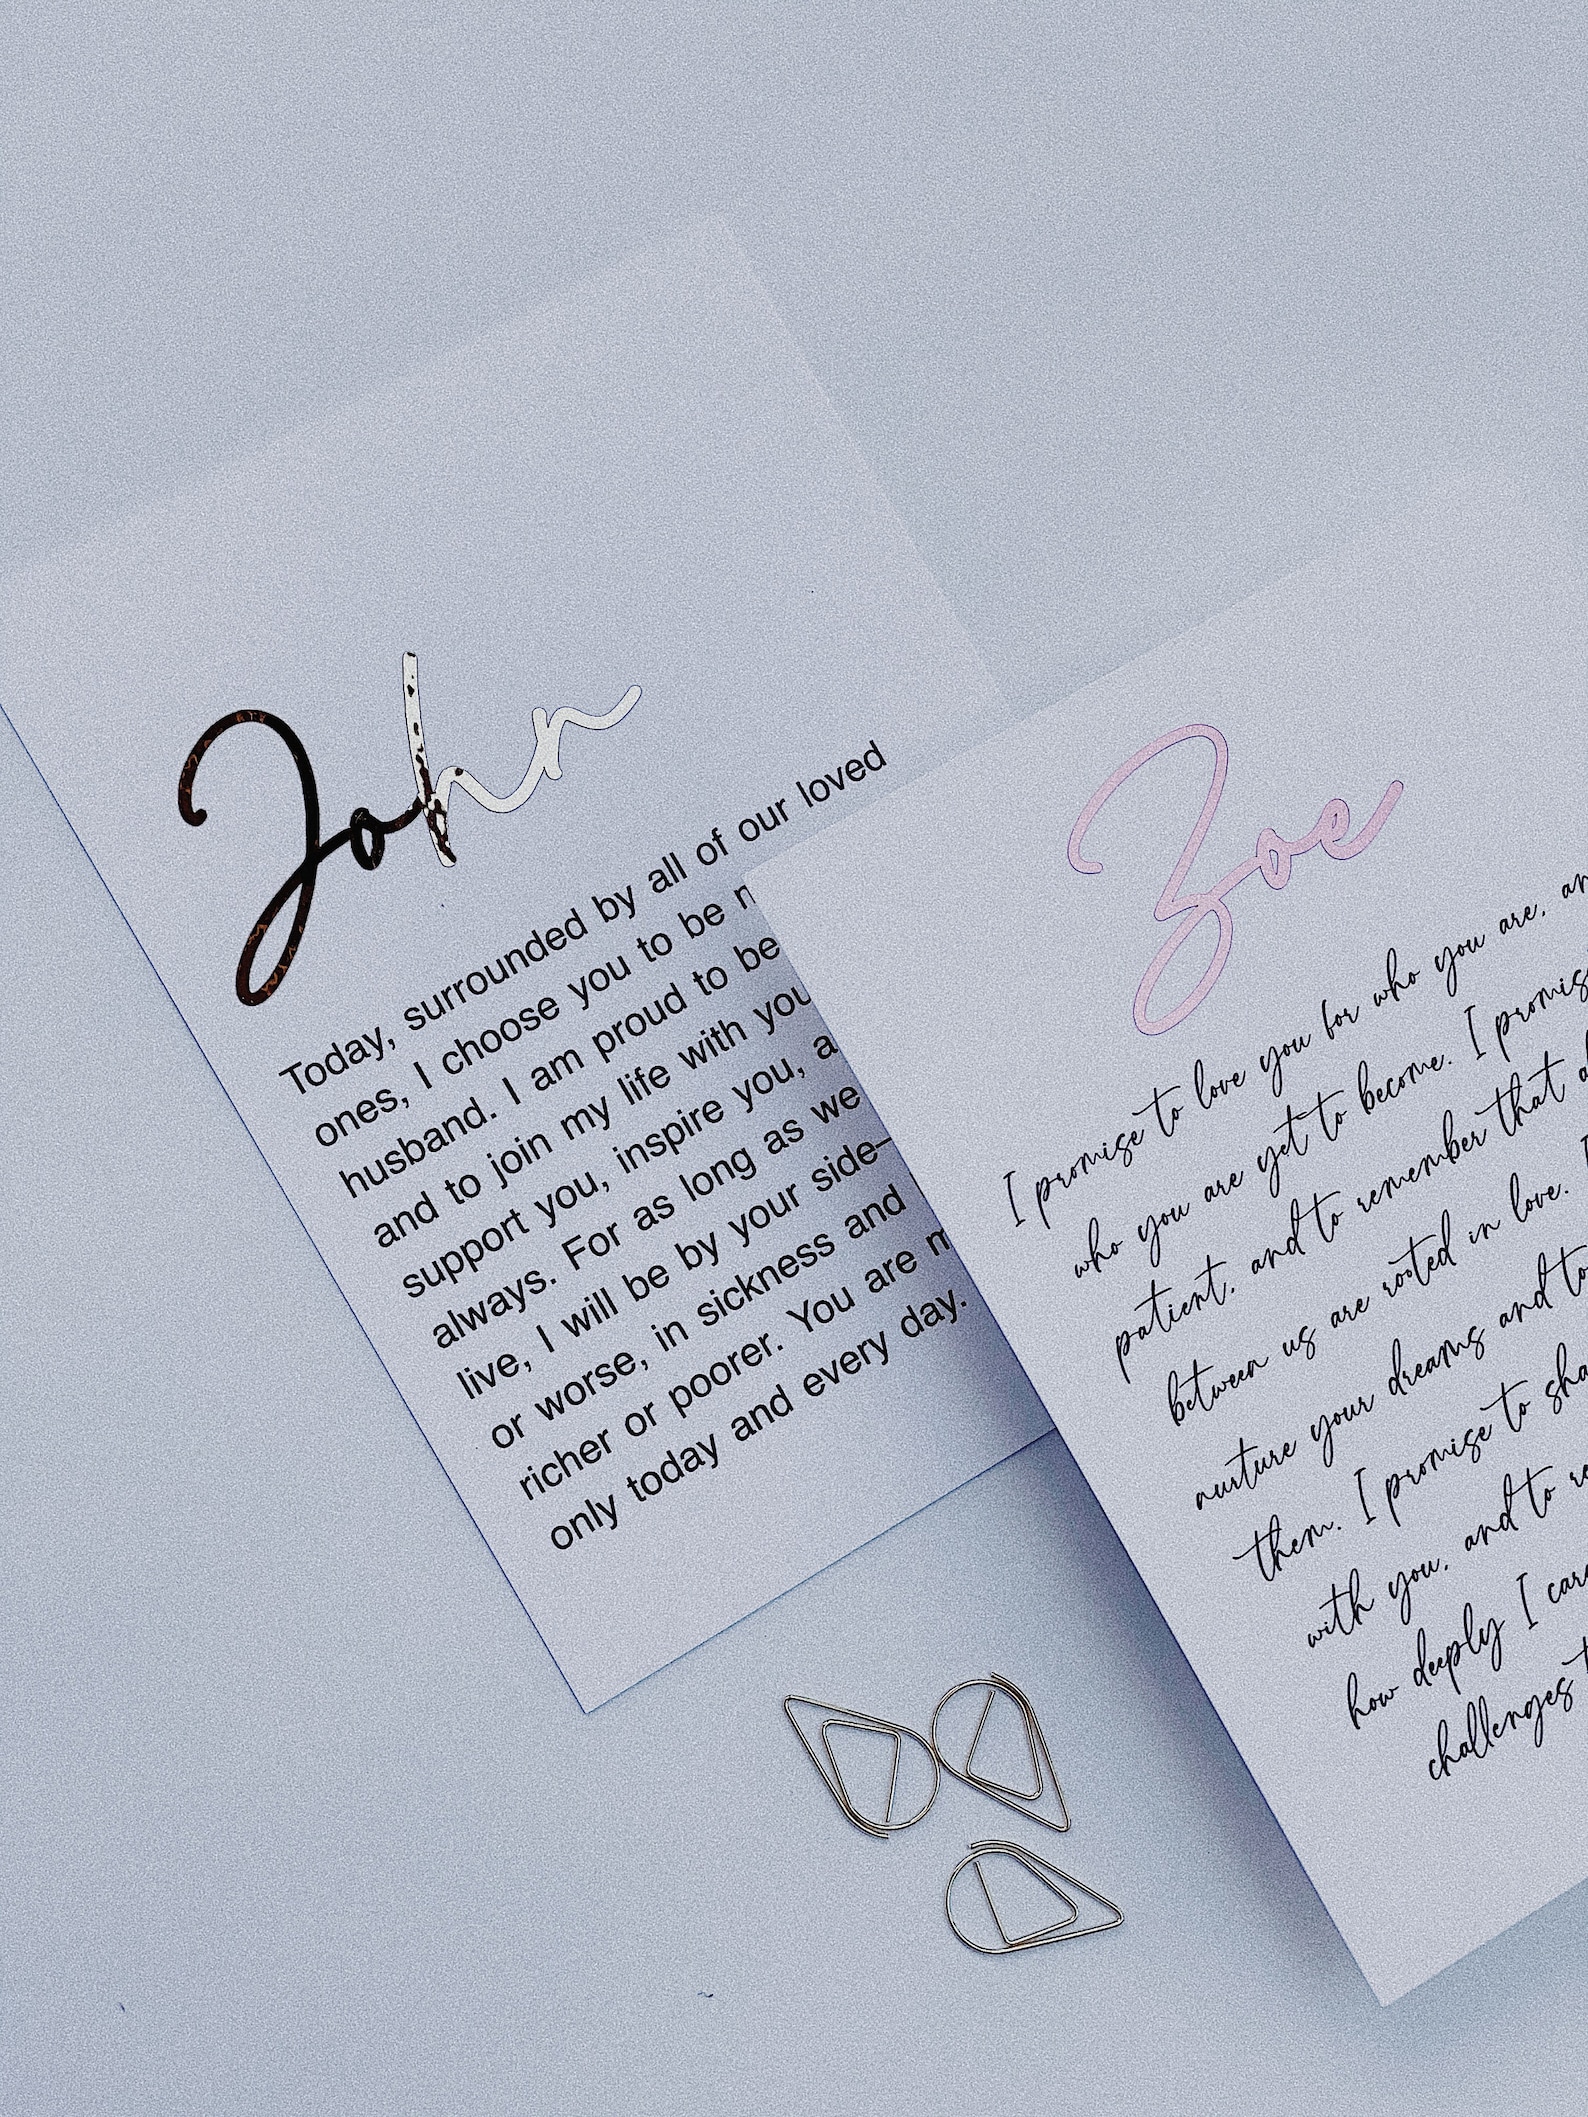 John
Today, surrounded by all of our loved
ones, I choose you to be
husband. I am proud to be
and to join my life with you
support you, inspire you,
always. For as long as we
live, I will be by your side–
or worse, in sickness and
richer or poorer. You are
only today and every day.
Zoe
I promise to love you for who you are, an
who you are yet to become. I promis
patient, and to remember that
between us are rooted in love.
nurture your dreams and to
them. I promise to sha
with you, and to re
how deeply I care
challenges